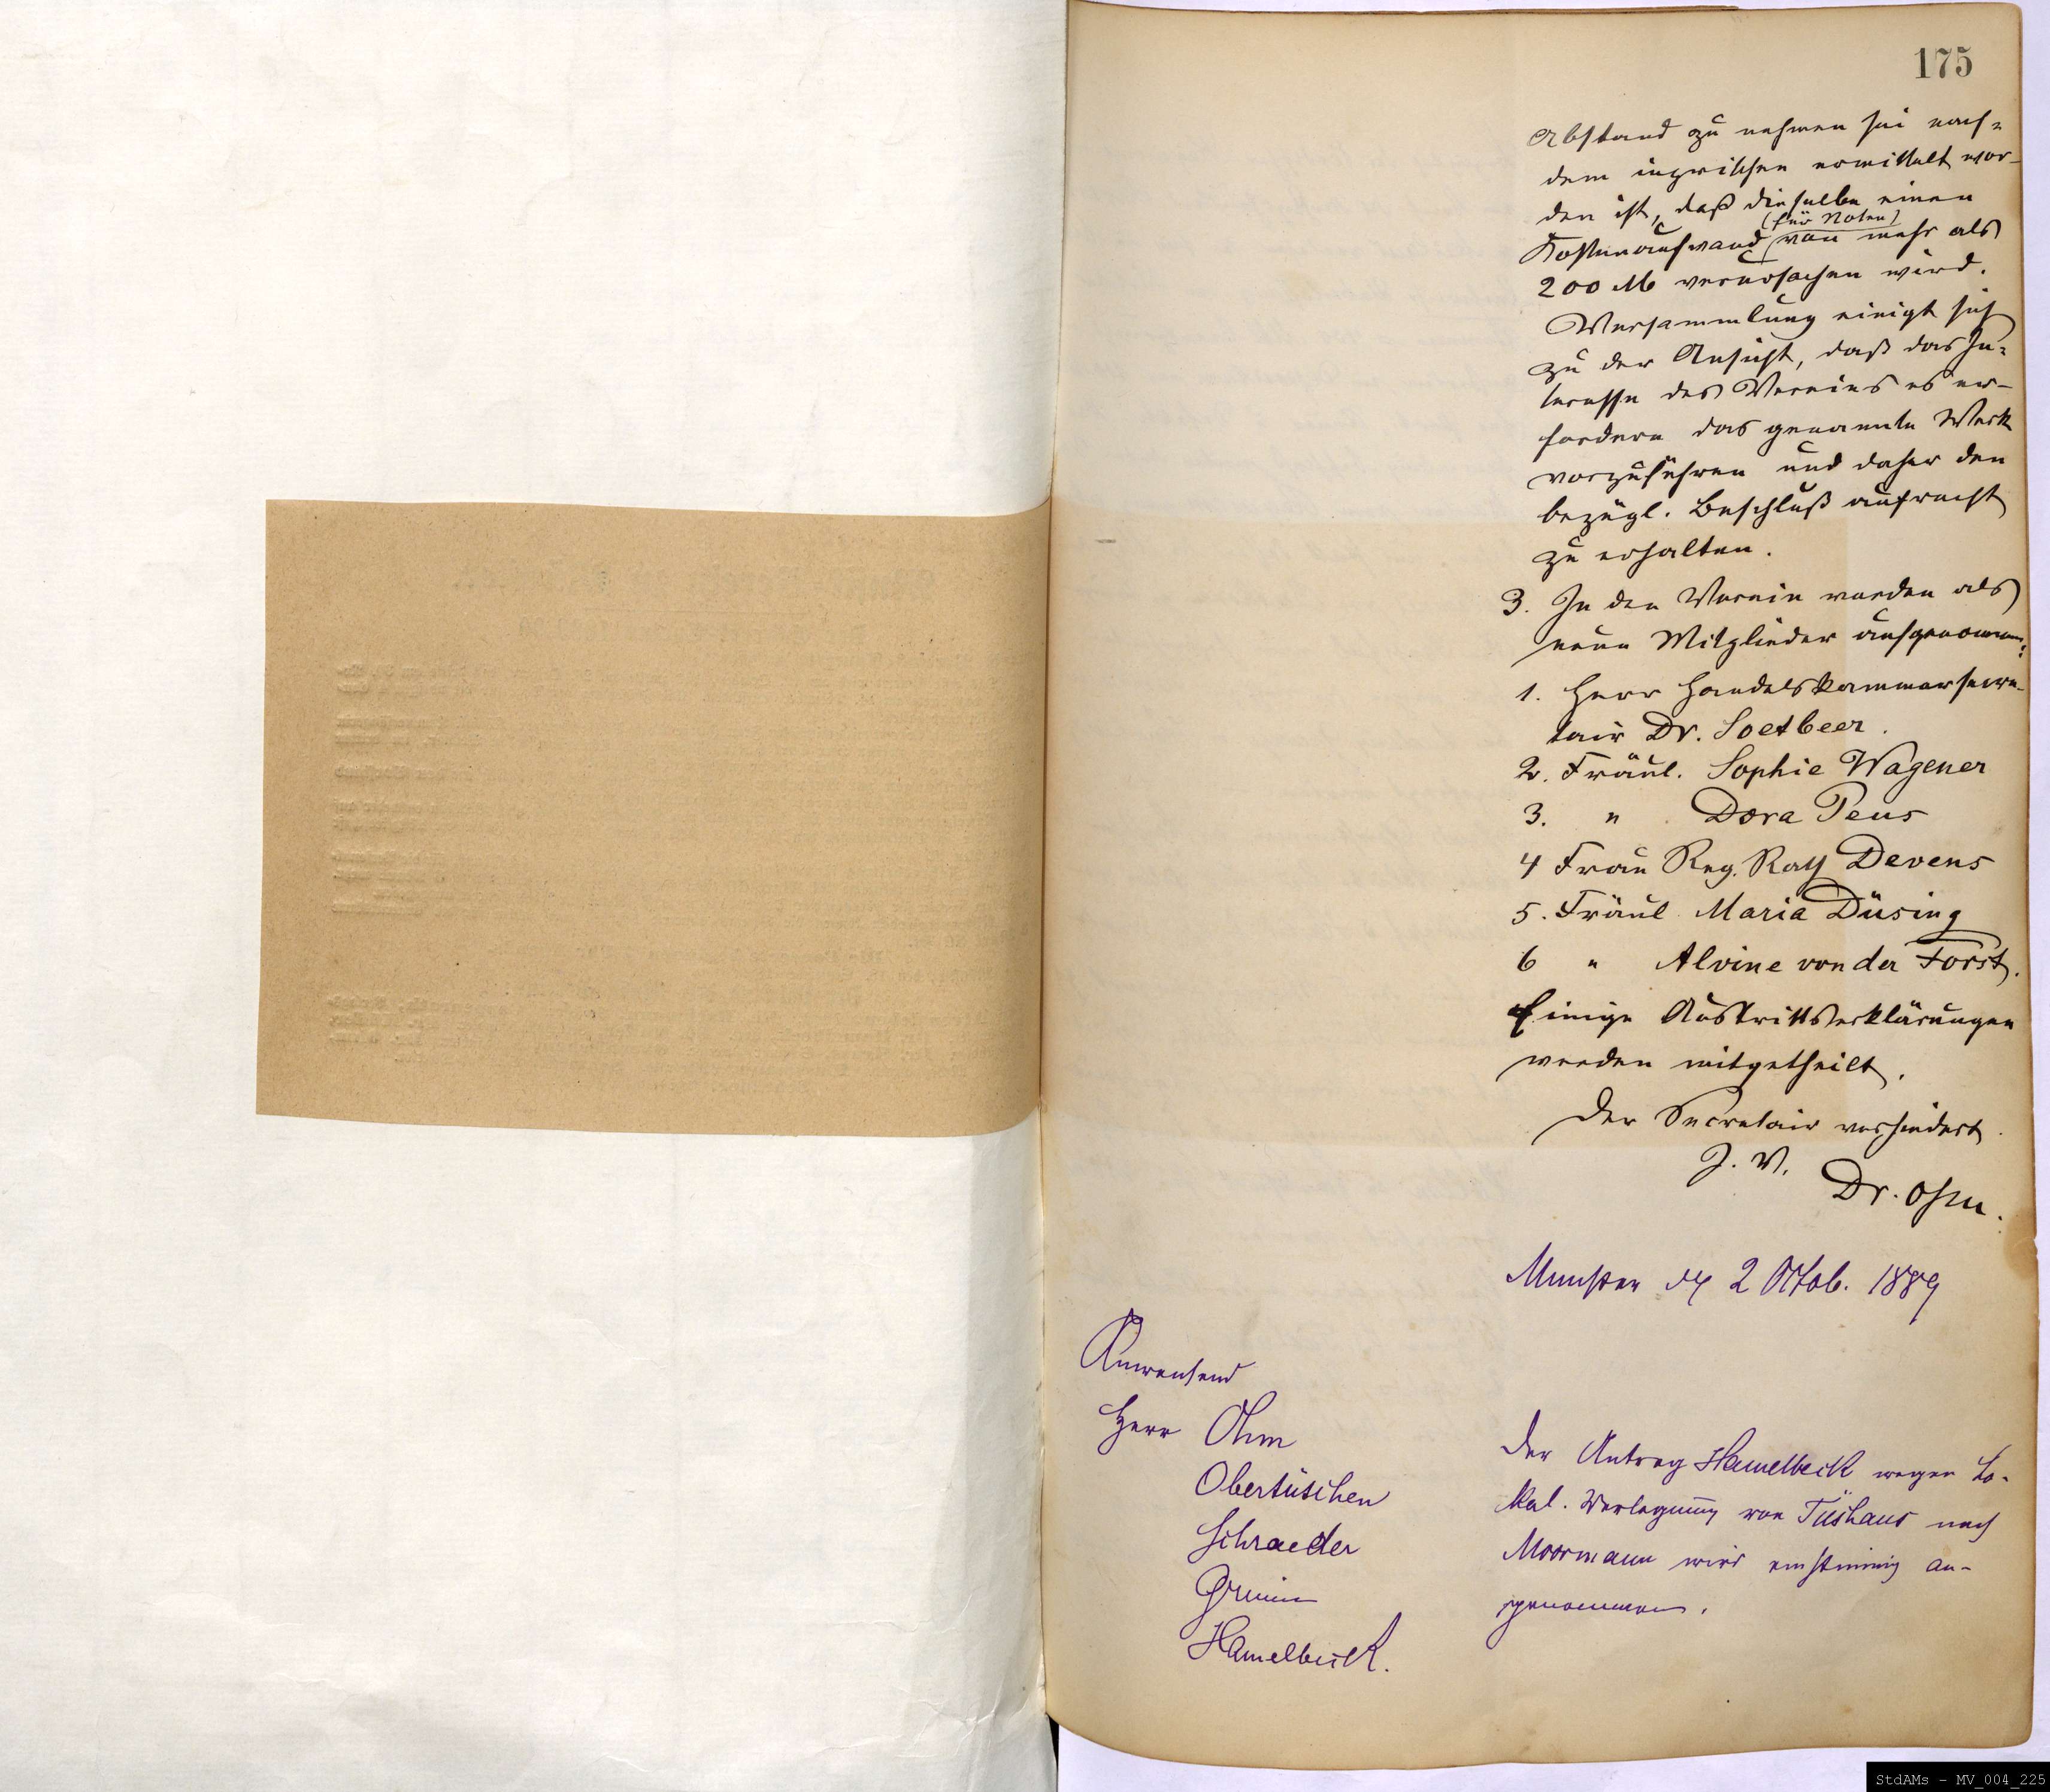 175
Abstand zu nehmen sei nach-
dem inzwischen ermittelt wor-
den ist, daß dieselbe einen
(für Noten)
Kostenaufwand von mehr als
200 M verursachen wird.
Versammlung einigt sich
zu der Ansicht, daß das In-
teresse des Vereins es er-
fordere das genannte Werk
vorzuführen und daher den
bezügl. Beschluß aufrecht
zu erhalten.
3. In den Verein werden als
neue Mitglieder aufgenommen:
1. Herr Handelskammersecre-
tair Dr. Soetbeer.
2. Fräul. Sophie Wagener
3. " Dora Peus
4 Frau Reg. Rath Devens
5. Fräul Maria Düsing
6 " Alvine von der Forst.
Einige Austrittserklärungen
werden mitgetheilt.
Der Secretair verhindert.
J. V.
Dr. Ohm.
Munster d 2 Octob. 1889
Anwesend
Herr Ohm
Obertüschen
Schraeder
Grimm
Hamelbeck.
Der Antrag Hamelbeck wegen Lo-
kal. Verlegung von Tüshaus nach
Moormann wird einstimmig an-
genommen.
StdAMs - MV_004_225